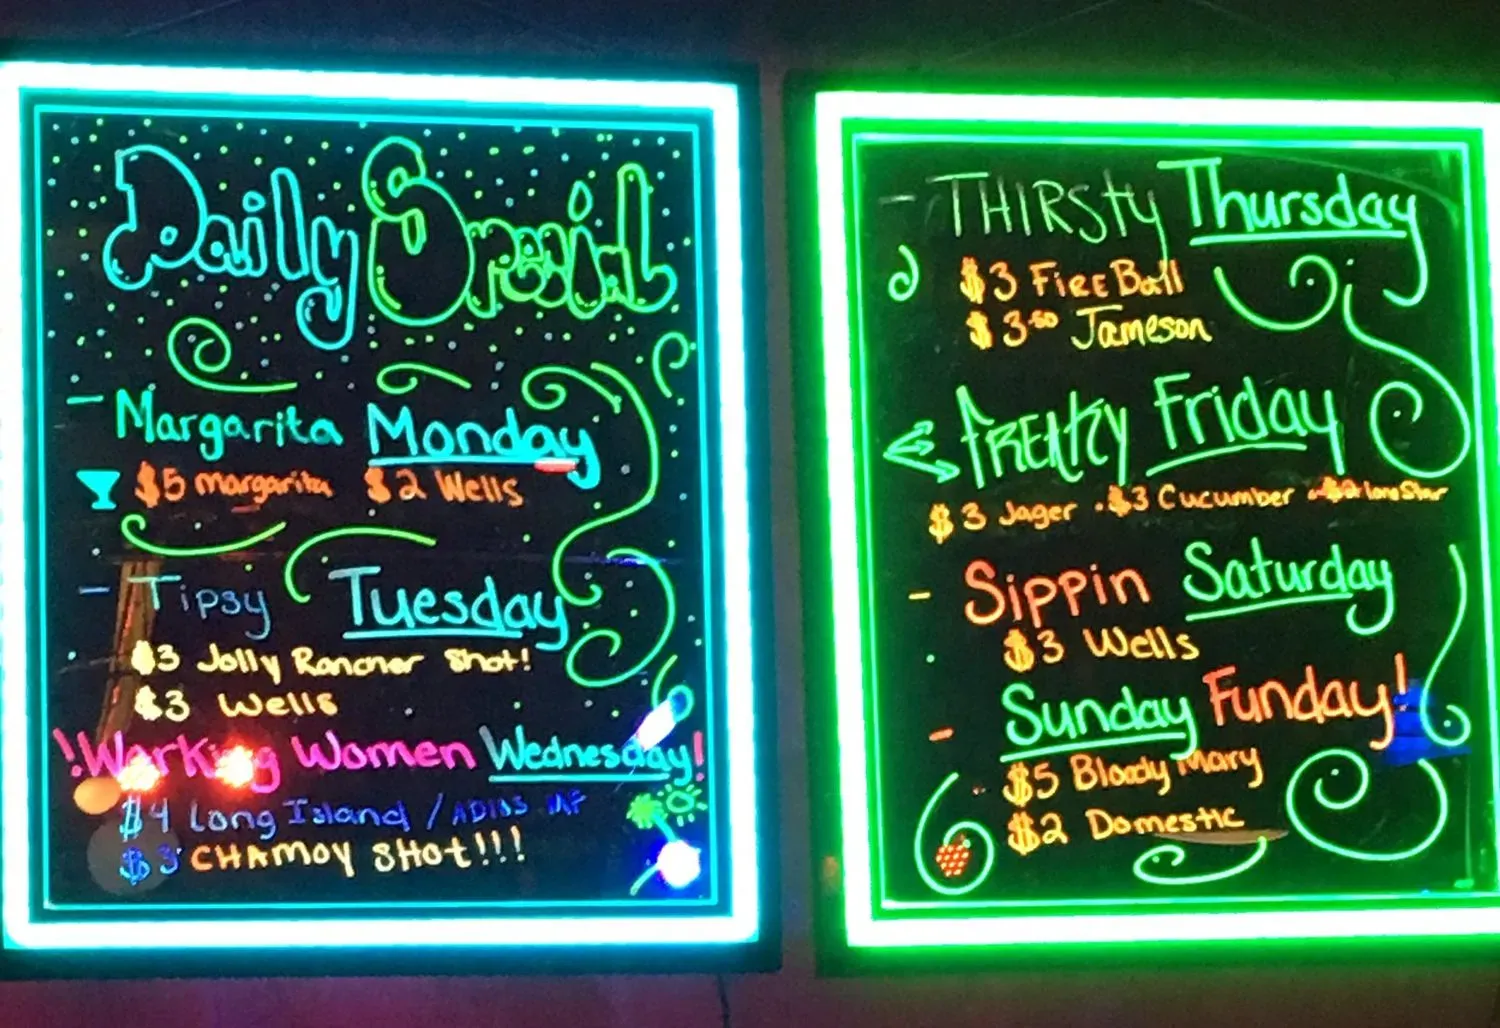 Daily Special
- Margarita Monday
$5 margarita $2 Wells
- Tipsy Tuesday
$3 Jolly Rancher Shot!
$3 Wells
!Working Women Wednesday!
$4 Long Island / ADIOS MF
$3 CHAMOY SHOT!!!
- THIRSTY Thursday
$3 FIREBall
$3.50 Jameson
FREAKY Friday
$3 Jager . $3 Cucumber . $2 lone Star
- Sippin Saturday
$3 Wells
- Sunday Funday!
$5 Bloody Mary
$2 Domestic